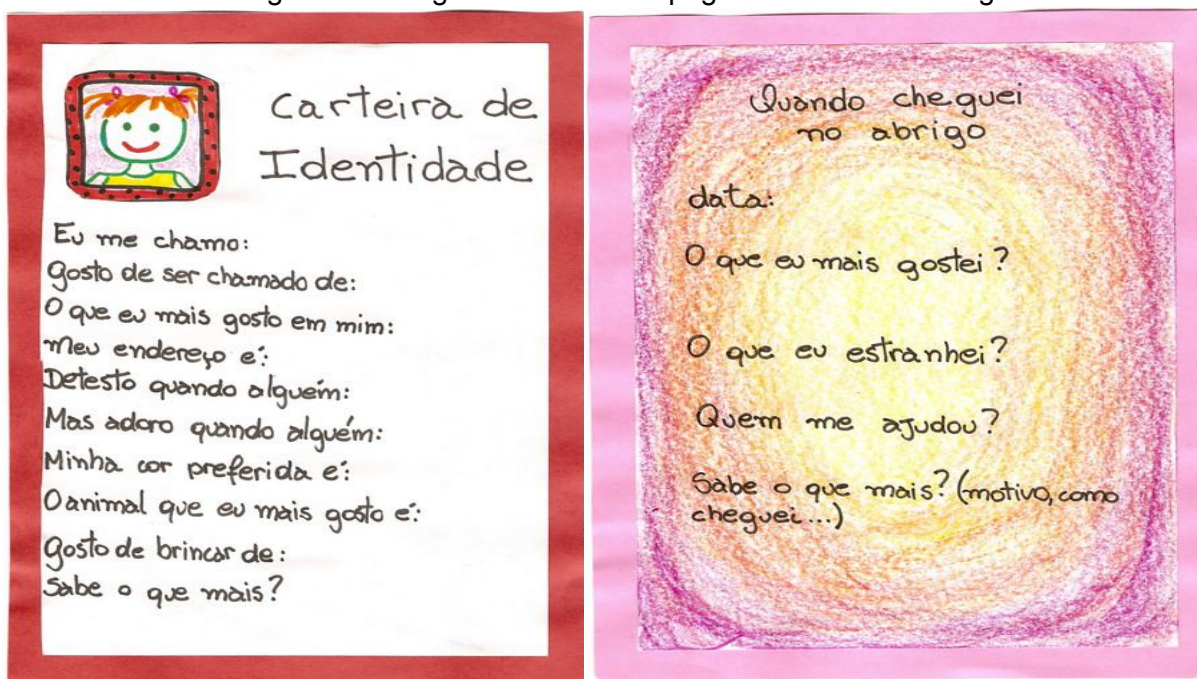 Carteira de
Identidade
Eu me chamo:
Gosto de ser chamado de:
O que eu mais gosto em mim:
Meu endereço é:
Detesto quando alguém:
Mas adoro quando alguém:
Minha cor preferida é:
O animal que eu mais gosto é:
Gosto de brincar de:
Sabe o que mais?
Quando cheguei
no abrigo
data:
O que eu mais gostei?
O que eu estranhei?
Quem me ajudou?
Sabe o que mais? (motivo, como
cheguei...)